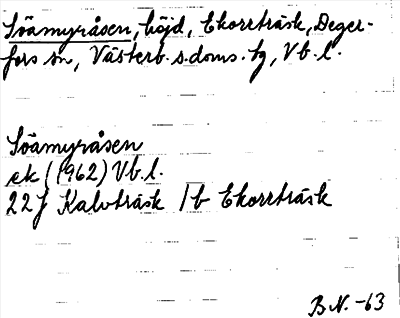 Söämyråsen, höjd, Ekorrträsk, Deger-
fors sn, Västerb. s. doms. hg, Vb. l.
Söämyråsen
ek (1962) Vb. l.
22 J Kalvträsk 1b Ekorrträsk
B.N. -63